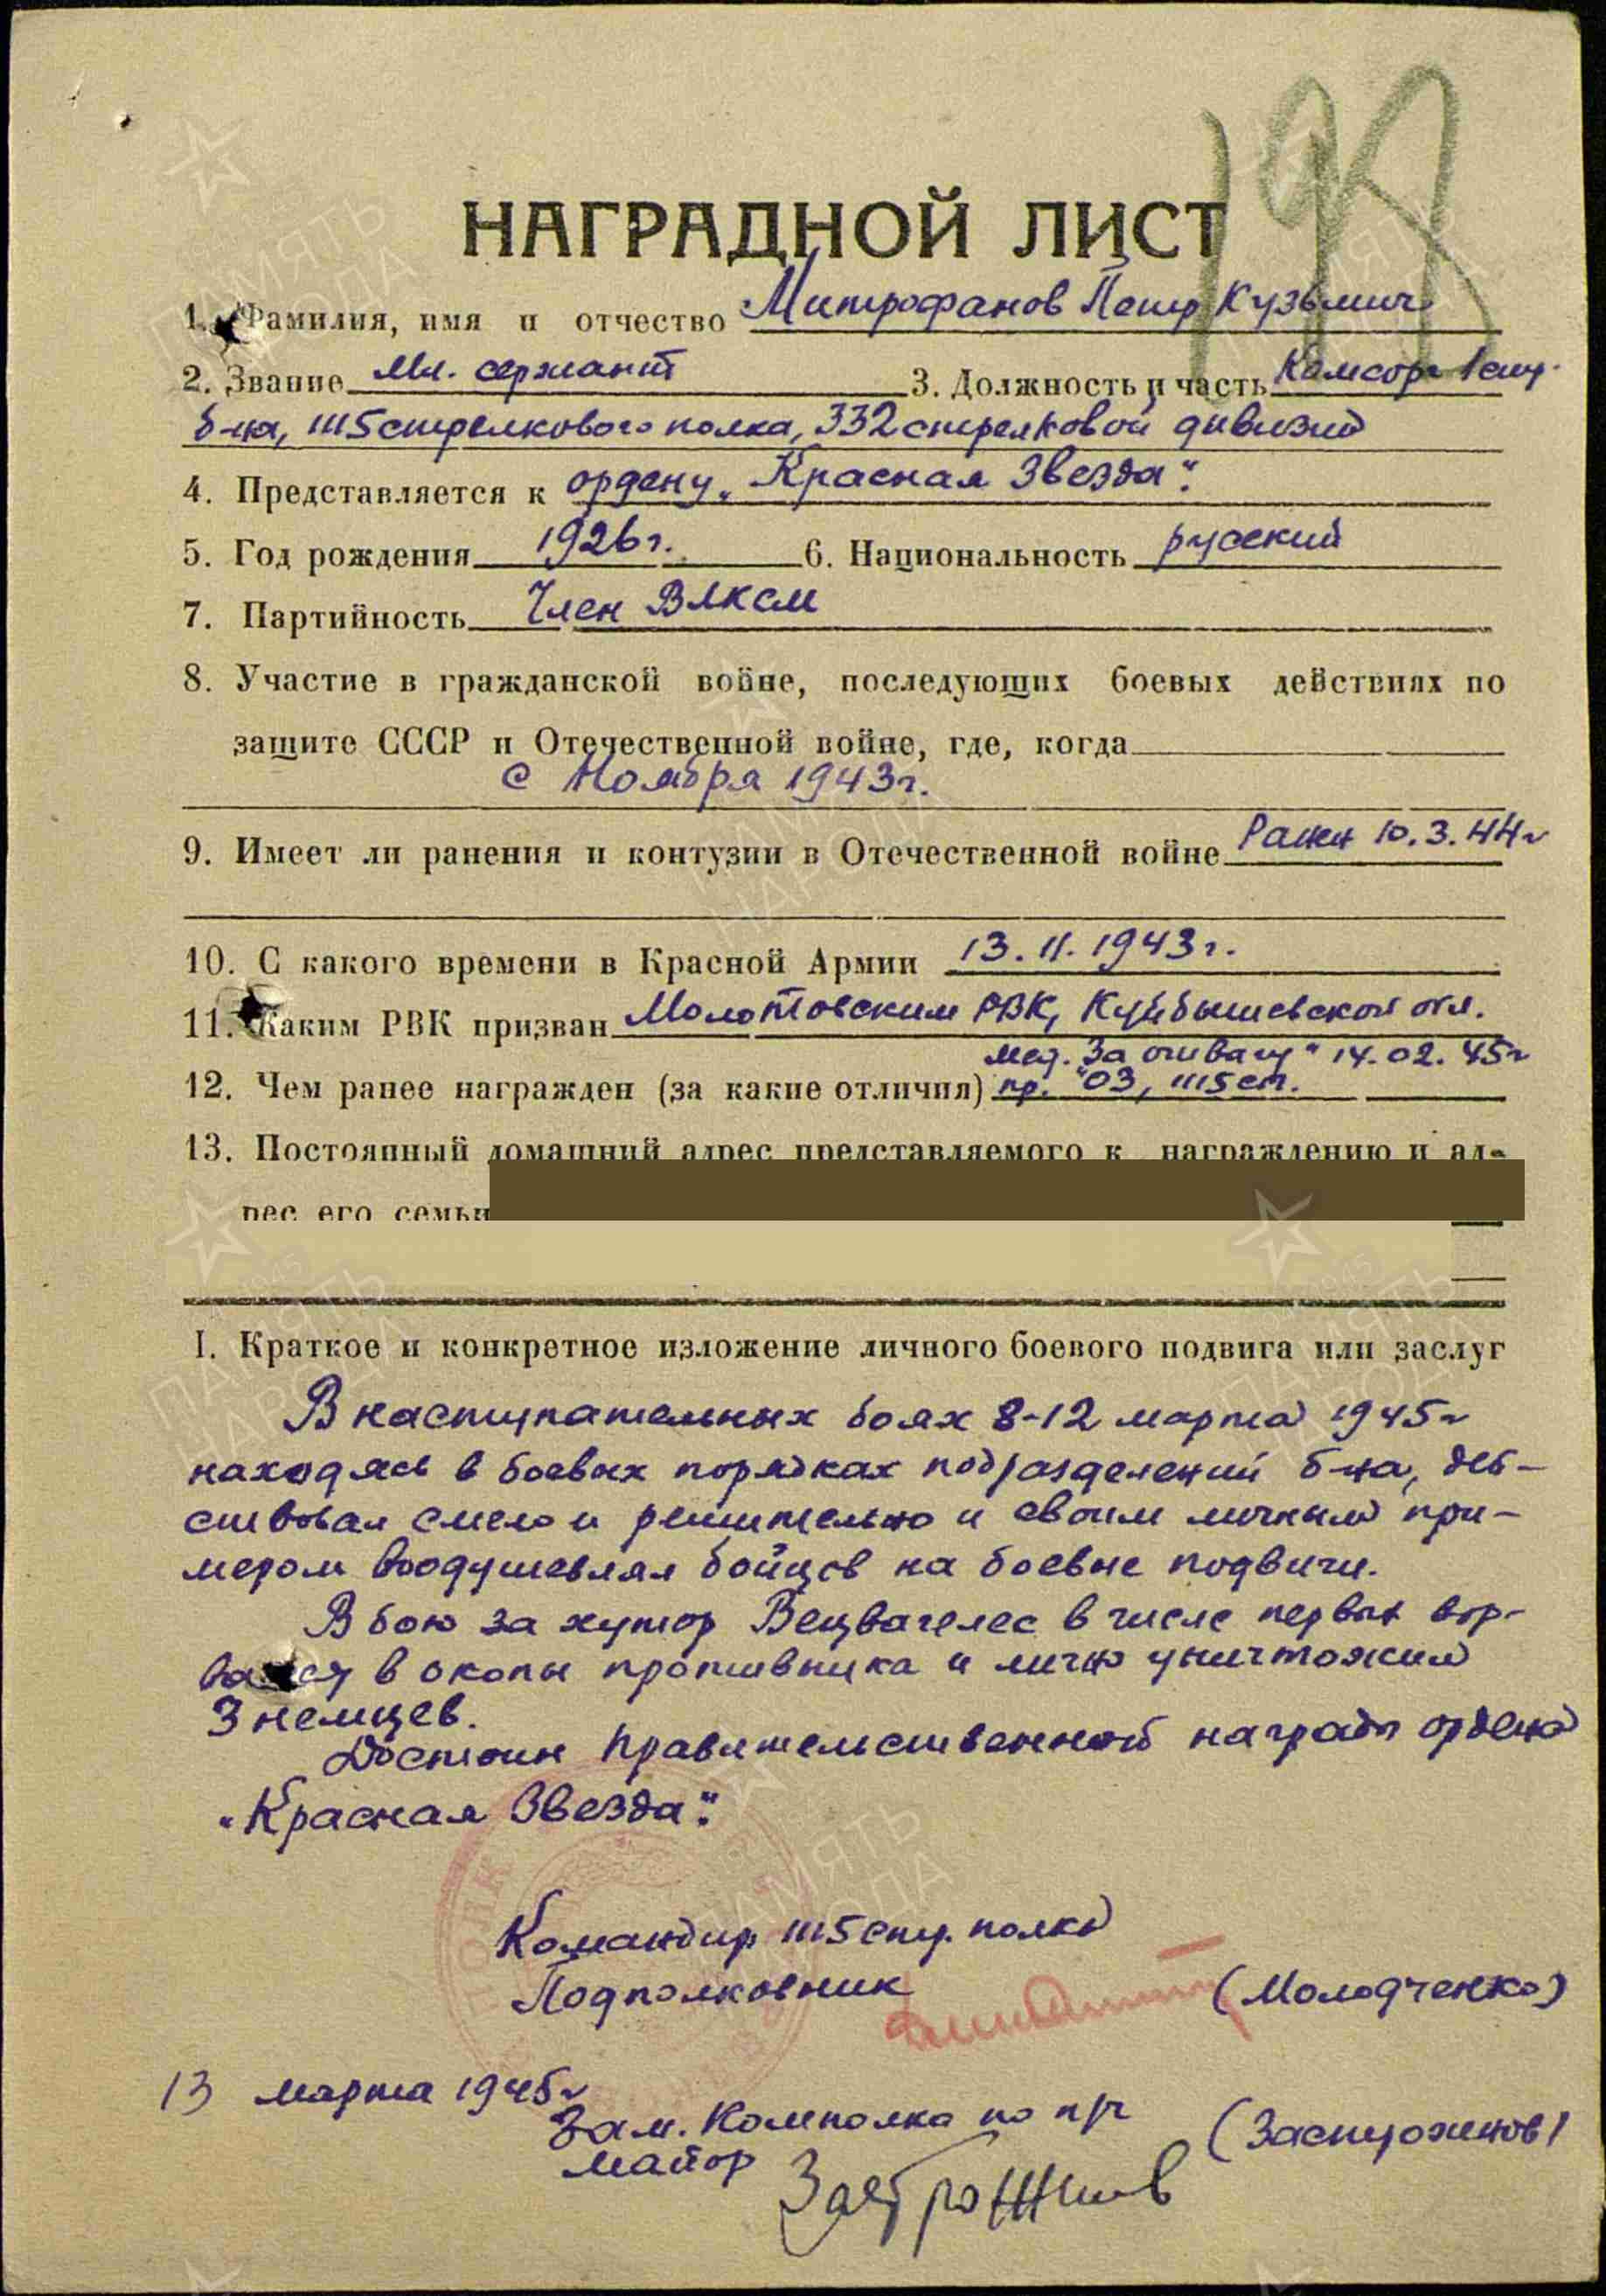 198
НАГРАДНОЙ ЛИСТ
1. Фамилия, имя и отчество Митрофанов Петр Кузьмич
2. Звание Мл. сержант 3. Должность и часть Комсорг 1 стр.
б-на, 1115 стрелкового полка, 332 стрелковой дивизии
4. Представляется к ордену „Красная Звезда".
5. Год рождения 1926 г. 6. Национальность русский
7. Партийность Член ВЛКСМ
8. Участие в гражданской войне, последующих боевых действиях по
защите СССР и Отечественной войне, где, когда
с Ноября 1943 г.
9. Имеет ли ранения и контузии в Отечественной войне Ранен 10.3.44 г
10. С какого времени в Красной Армии 13.11.1943 г.
11. Каким РВК призван Молотовским РВК, Куйбышевской обл.
мед. „За отвагу" 14.02.45 г
12. Чем ранее награжден (за какие отличия) пр. 03, 1115 сп.
13. Постоянный домашний адрес представляемого к награждению и ад-
рес его семьи
I. Краткое и конкретное изложение личного боевого подвига или заслуг
В наступательных боях 8-12 марта 1945 г
находясь в боевых порядках подразделений б-на, дей-
ствовал смело и решительно и своим личным при-
мером воодушевлял бойцов на боевые подвиги.
В бою за хутор Вецвагелес в числе первых вор-
вался в окопы противника и лично уничтожил
3 немцев.
Достоин правительственной награды ордена
„Красная Звезда".
Командир 1115 стр. полка
Подполковник (Молодченко)
13 марта 1945 г
Зам. Комполка по п/ч
майор (Застрожнов)
Застрожнов
ПАМЯТЬ
НАРОДА